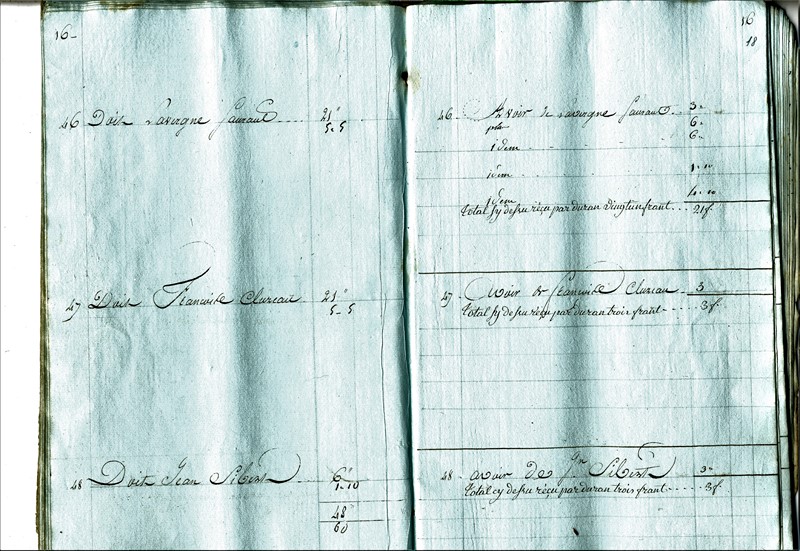 16-
46 Doit Lavergne Gauraud .... 21"
5-5
47 Doit Francoise Clureau. 21"
5-5
48 Doit Jean Sibert 6"
1-10
48"
60
16
18
46. Avoir de Lavergne Gauraud ... 3"
plu 6"
idem 6"
idem 1-10
idem 4-10
Total sy desu reçu par duran vingt un frant... 21f.
47. avoir de francoise Clureau. 3
Total sy desu reçu par duran trois frant - .... 3f.
48. avoir de Jn Sibert 3"
Total cy desu reçu par duran trois frant - .... 3f.